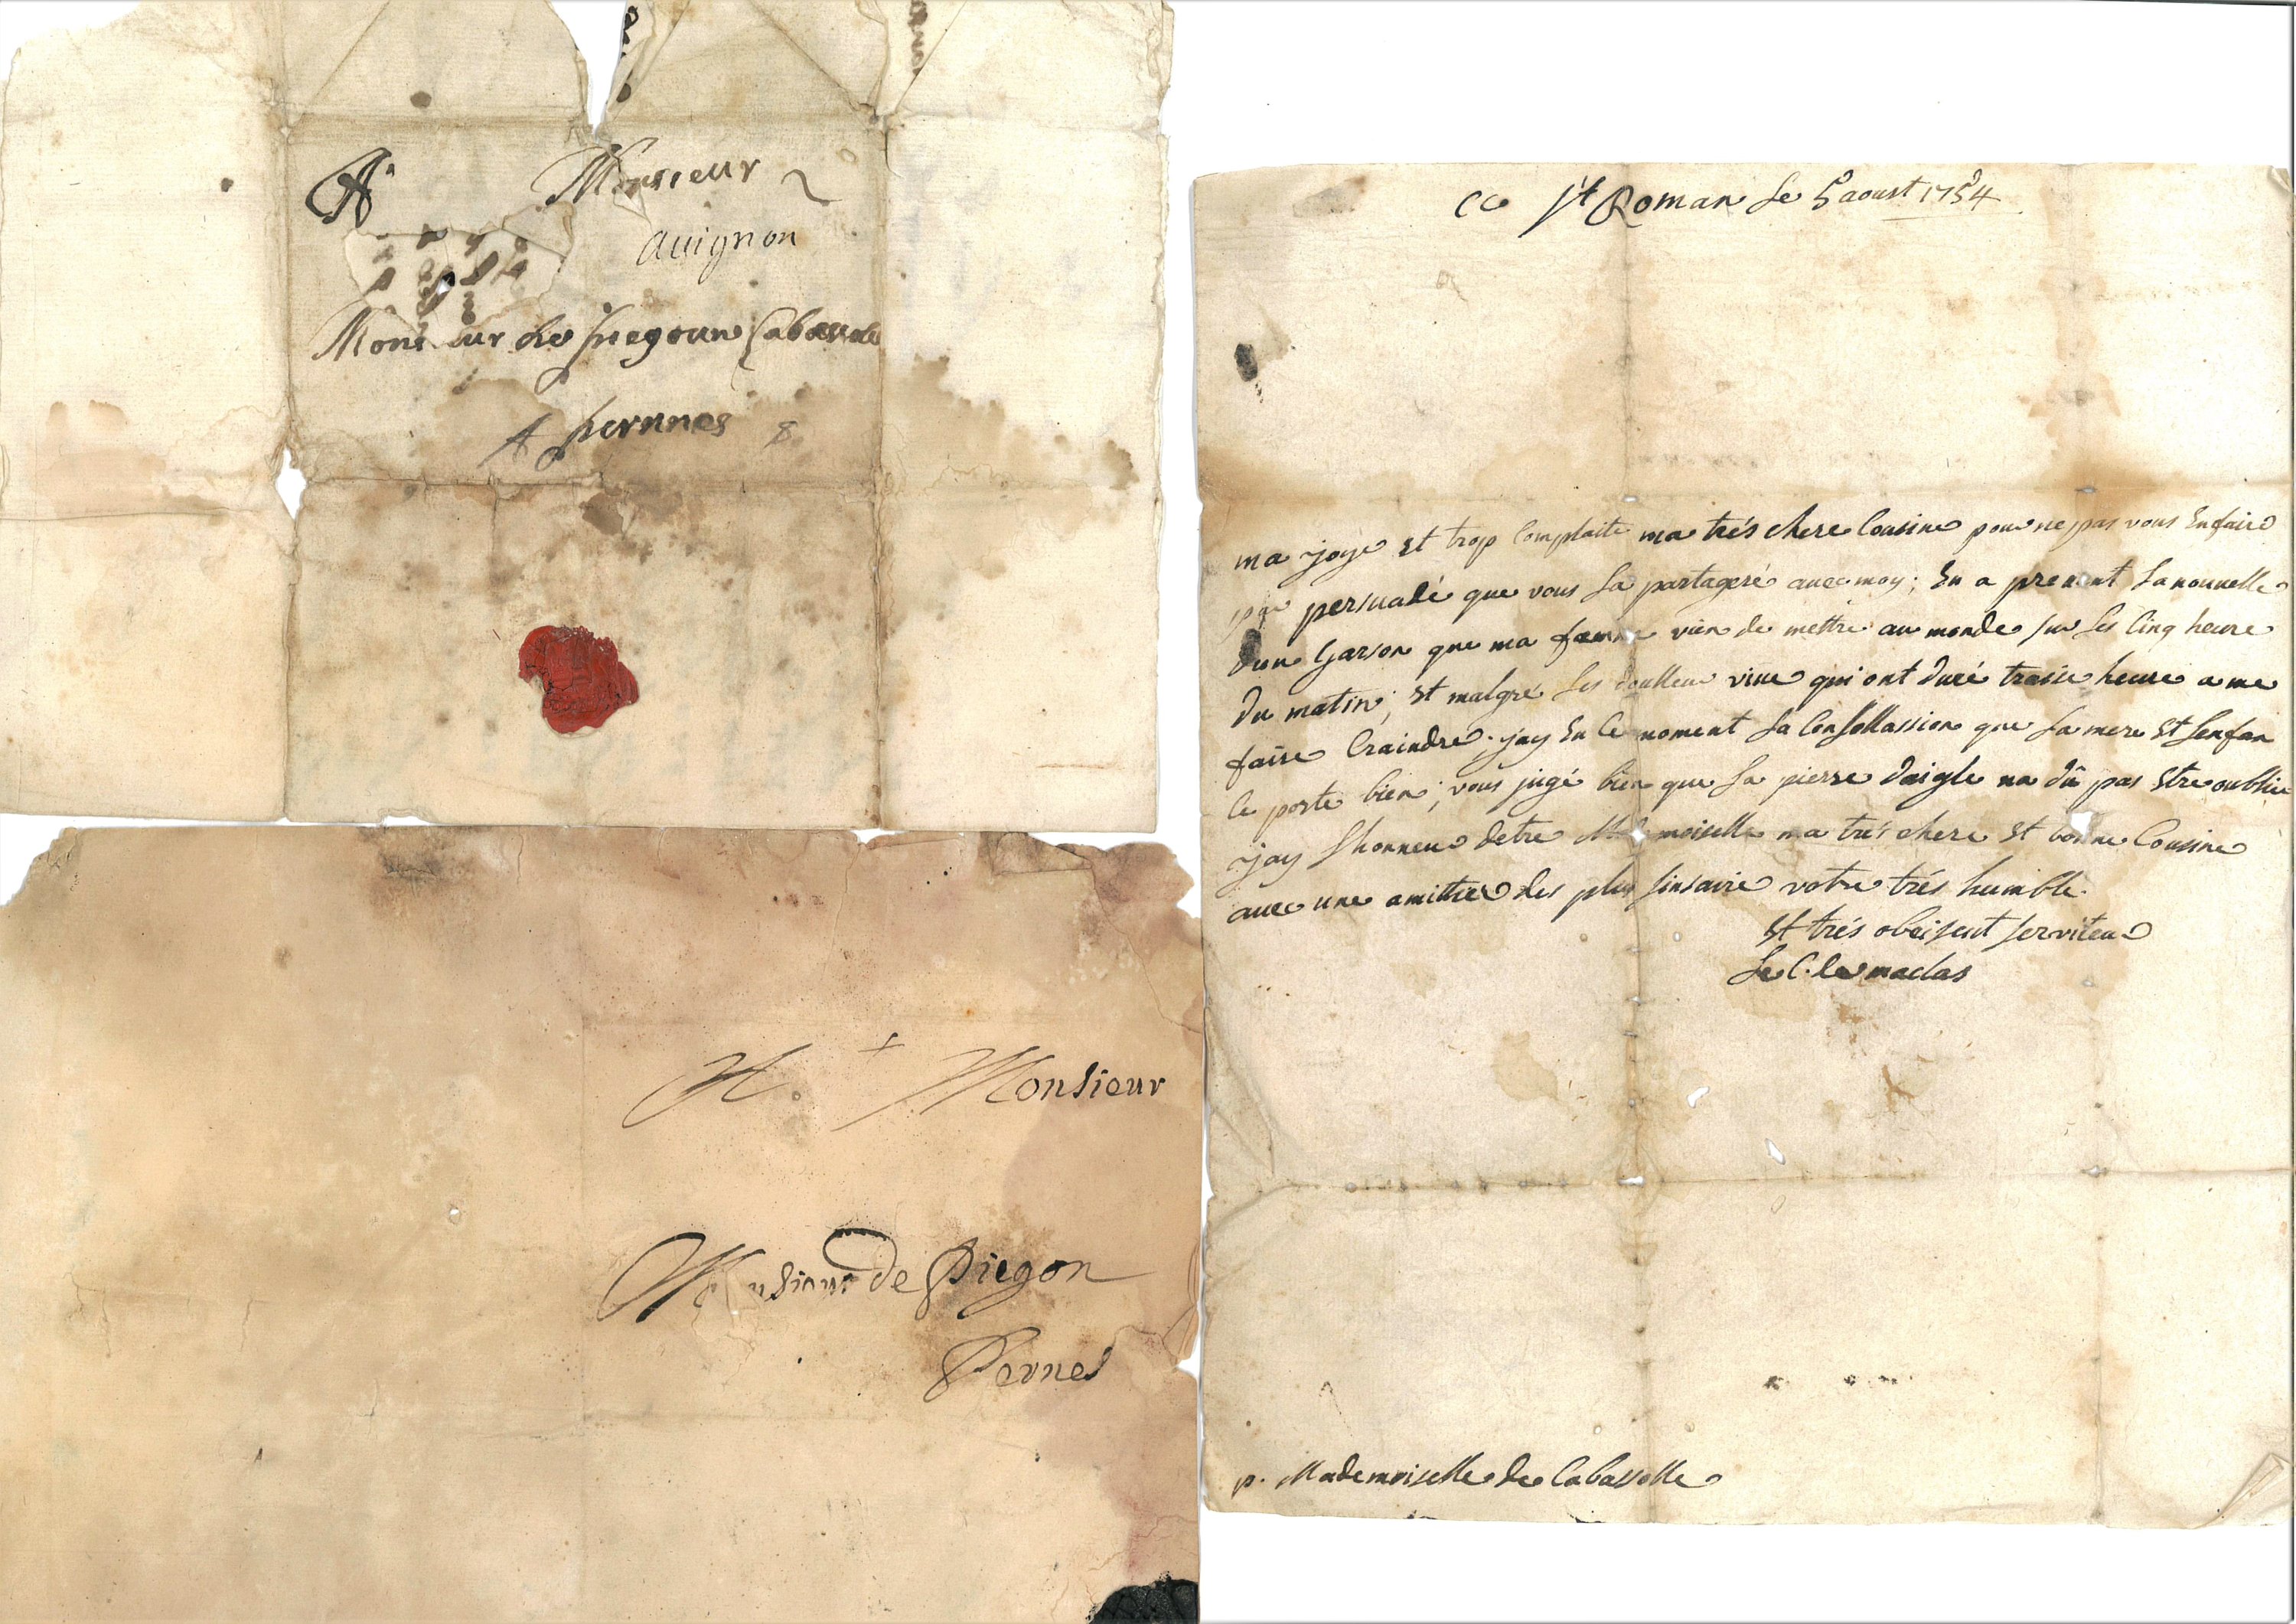 A Monsieur
Avignon
Monsieur de
A pernnes
A Monsieur
Monsieur de Piegon
Pernes
ce St Roman le 5 aoust 1754
ma joye et trop Complaite ma trés chere Cousine pour ne pas vous En faire
par persuadé que vous la partageré avec moy; En a prenent la nouvelle
dun Garson que ma famme vien de mettre au monde sur les Cinq heure
du matin; et malgré les doulleur vive qui ont duré traise heure a me
faire Craindre. jay En Ce moment la Consollassion que la mere Et lenfan
Ce porte bien; vous jugé bien que la pierre daigle na dû pas Etre oublié
jay lhonneur detre Mademoiselle ma trés chere et bonne Cousine
avec une amittié des plus sinsaire votre trés humble
et trés obeisent serviteur
Le C. de
p. Mademoiselle de Cabassolle